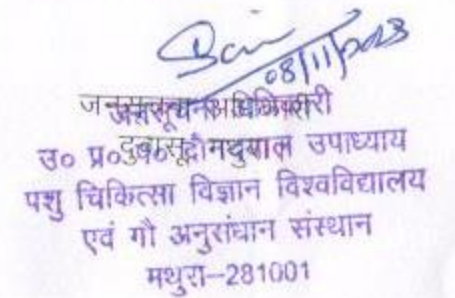 08/11/2023
जनसूचना अधिकारी
उ० प्र० पं० दीनदयाल उपाध्याय
पशु चिकित्सा विज्ञान विश्वविद्यालय
एवं गौ अनुसंधान संस्थान
मथुरा–281001